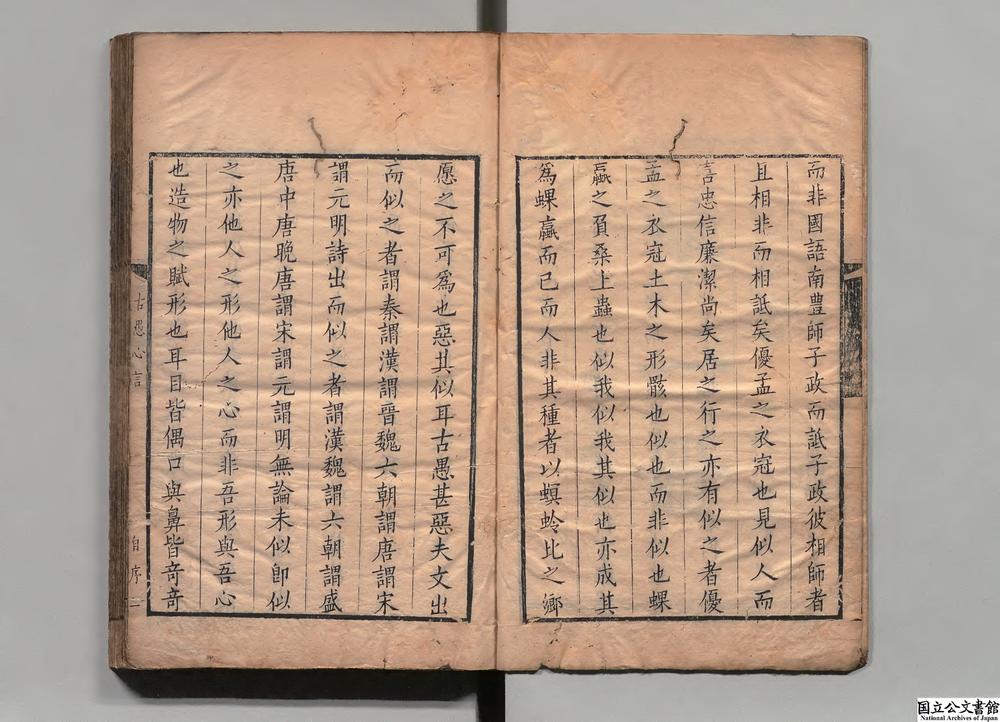 而非國語南豐師子政而詆子政彼相師者
且相非而相詆矣優孟之衣冠也見似人而
喜忠信廉潔尚矣居之行之亦有似之者優
孟之衣冠土木之形骸也似也而非似也蜾
蠃之負桑上蟲也似我似我其似也亦成其
爲蜾蠃而已而人非其種者以螟蛉比之鄉
愿之不可爲也惡其似耳古愚甚惡夫文出
而似之者謂秦謂漢謂晉魏六朝謂唐謂宋
謂元明詩出而似之者謂漢魏謂六朝謂盛
唐中唐晚唐謂宋謂元謂明無論未似卽似
之亦他人之形他人之心而非吾形與吾心
也造物之賦形也耳目皆偶口與鼻皆奇奇
古愚心言
自序
二
国立公文書館
National Archives of Japan